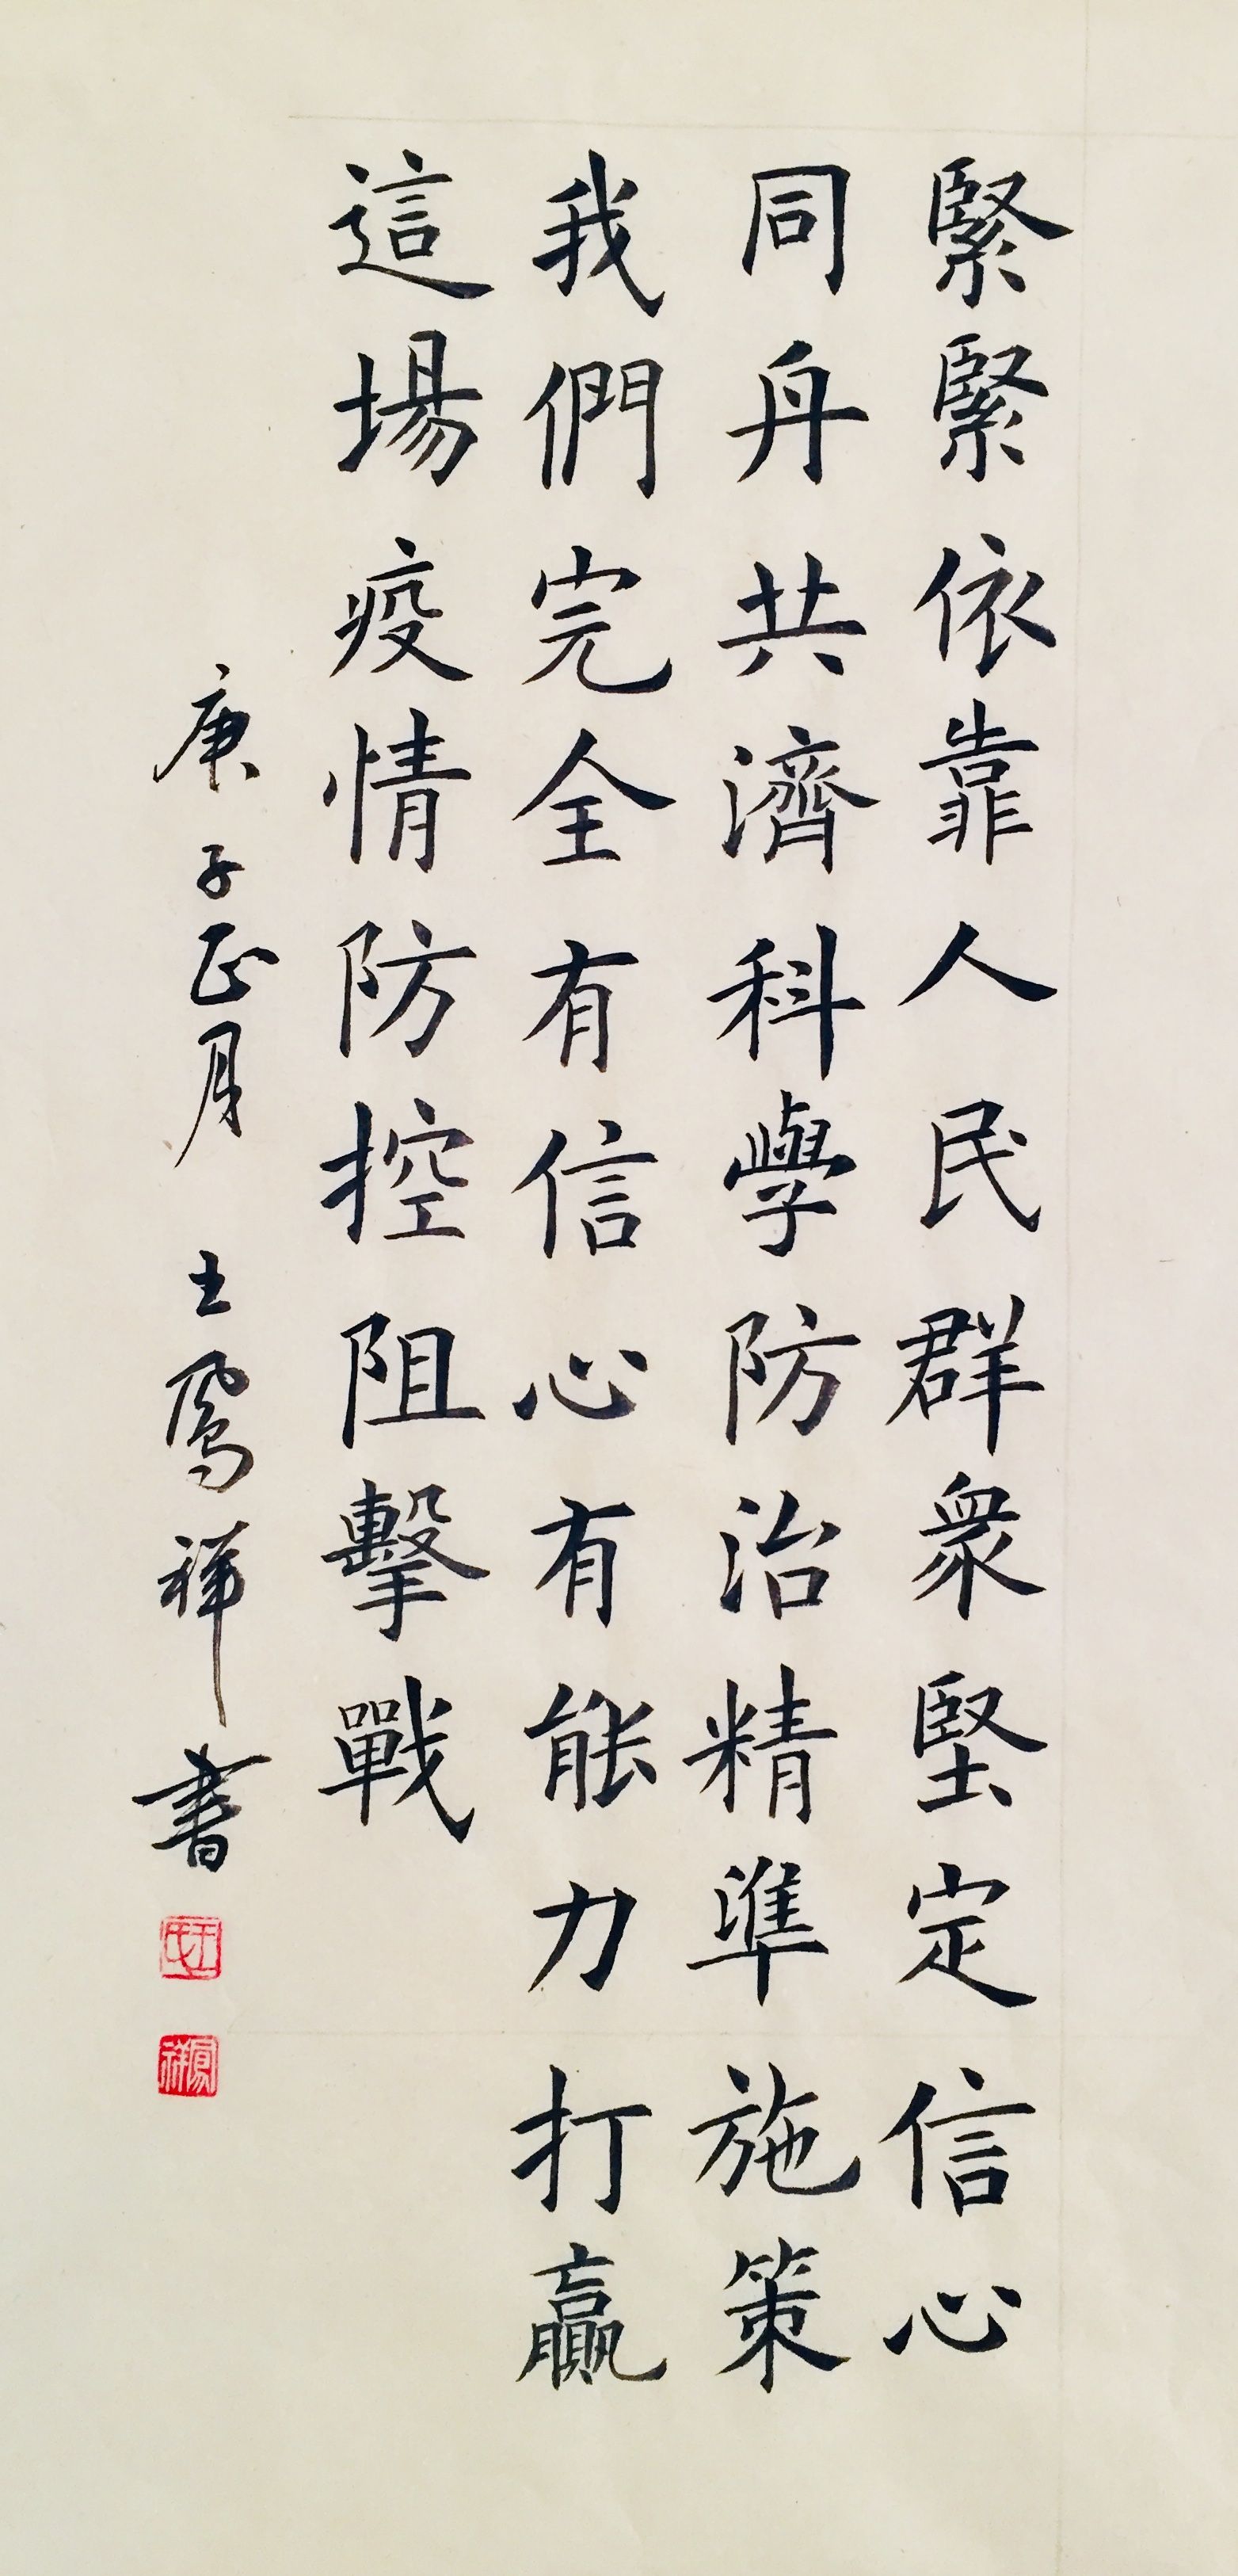 緊緊依靠人民群衆堅定信心
同舟共濟科學防治精準施策
我們完全有信心有能力打贏
這場疫情防控阻擊戰
庚子正月 王鳳祥書
王氏
鳳祥